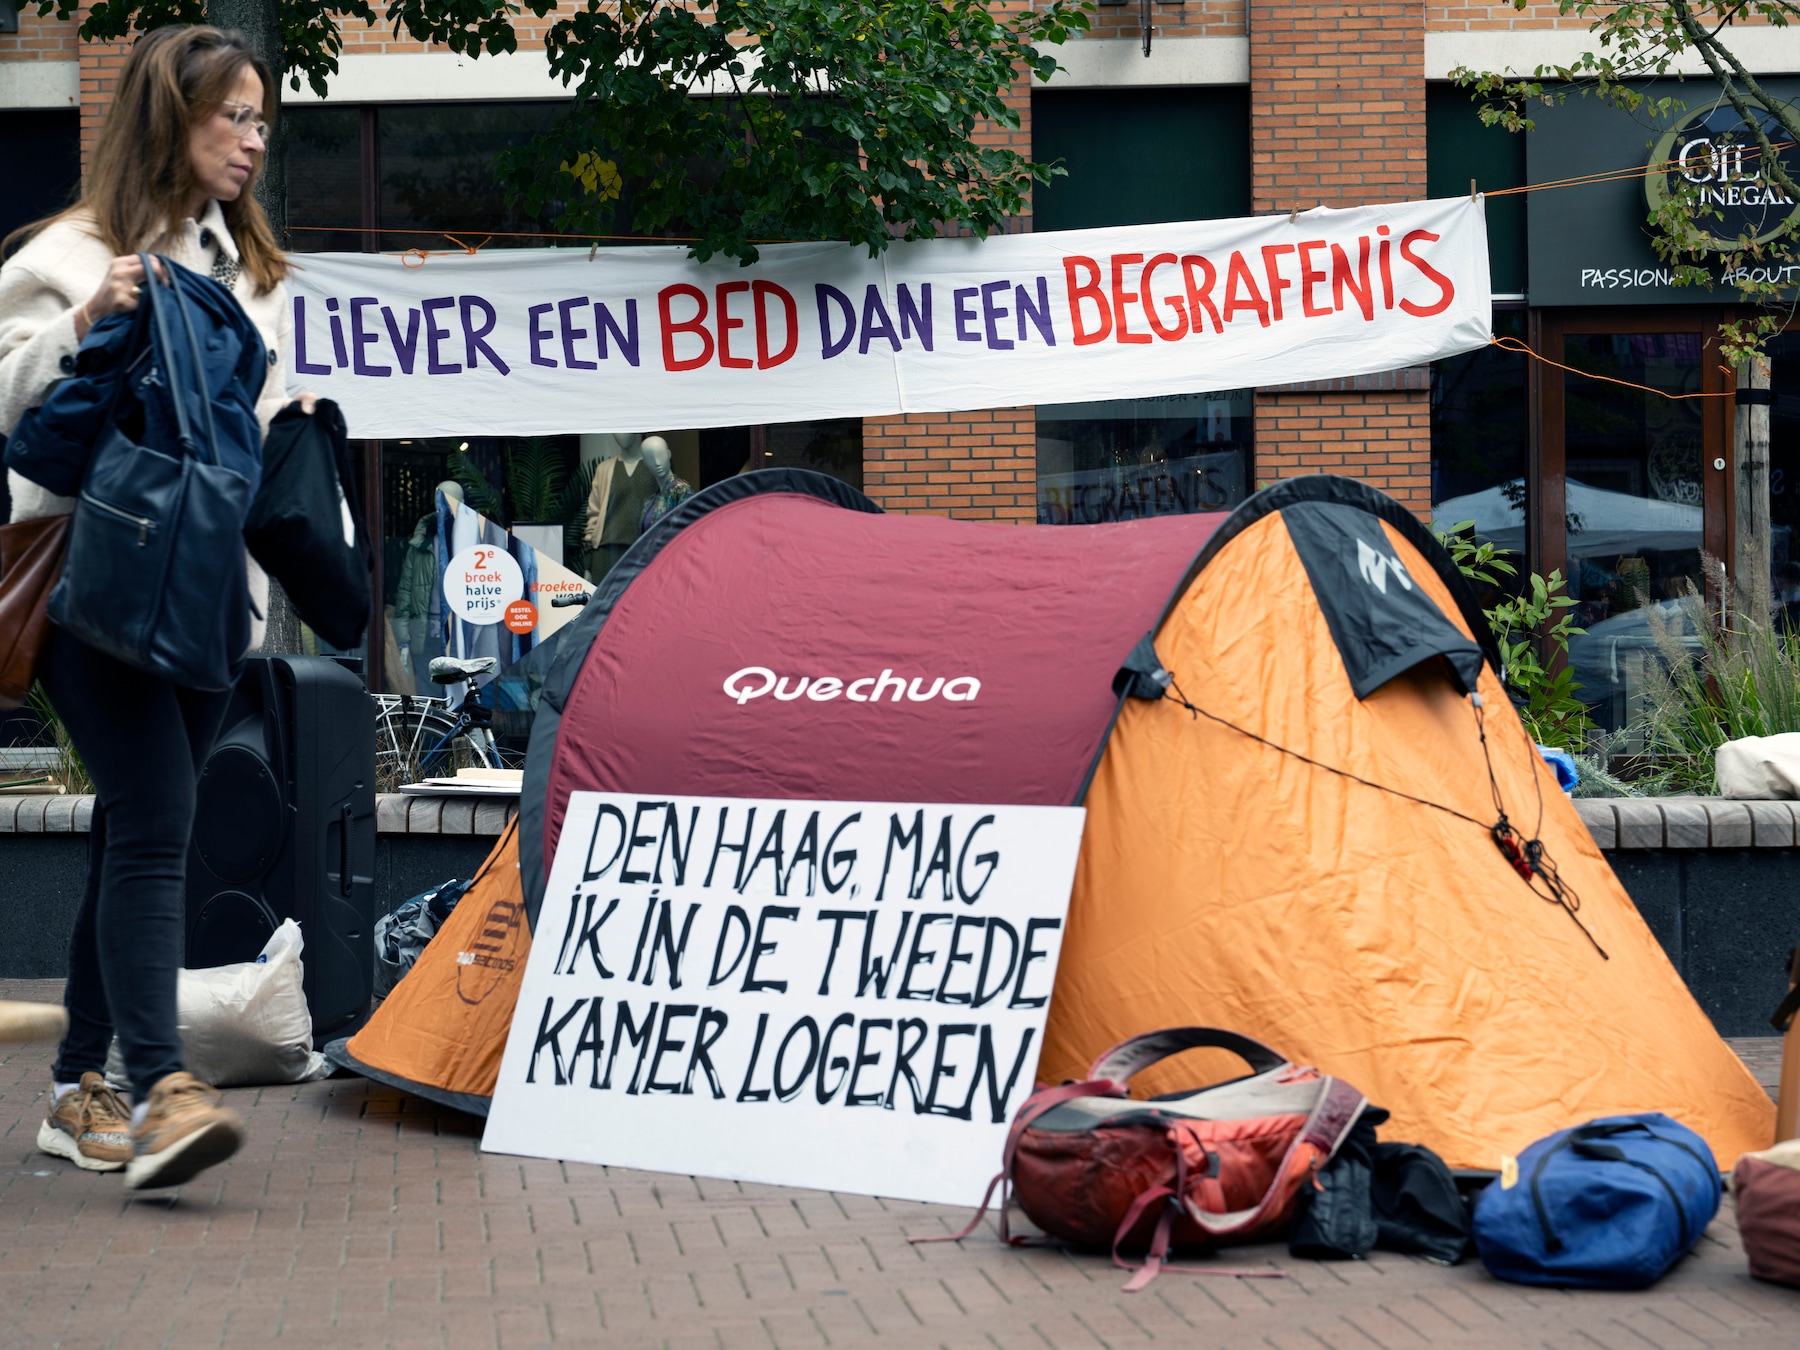 OIL &
VINEGAR
PASSIONATE ABOUT
LiEVER EEN BED DAN EEN BEGRAFENiS
BEGRAFENIS
2e
broek
halve
prijs*
BESTEL
OOK
ONLINE
Broeken
Quechua
DEN HAAG, MAG
iK iN DE TWEEDE
KAMER LOGEREN